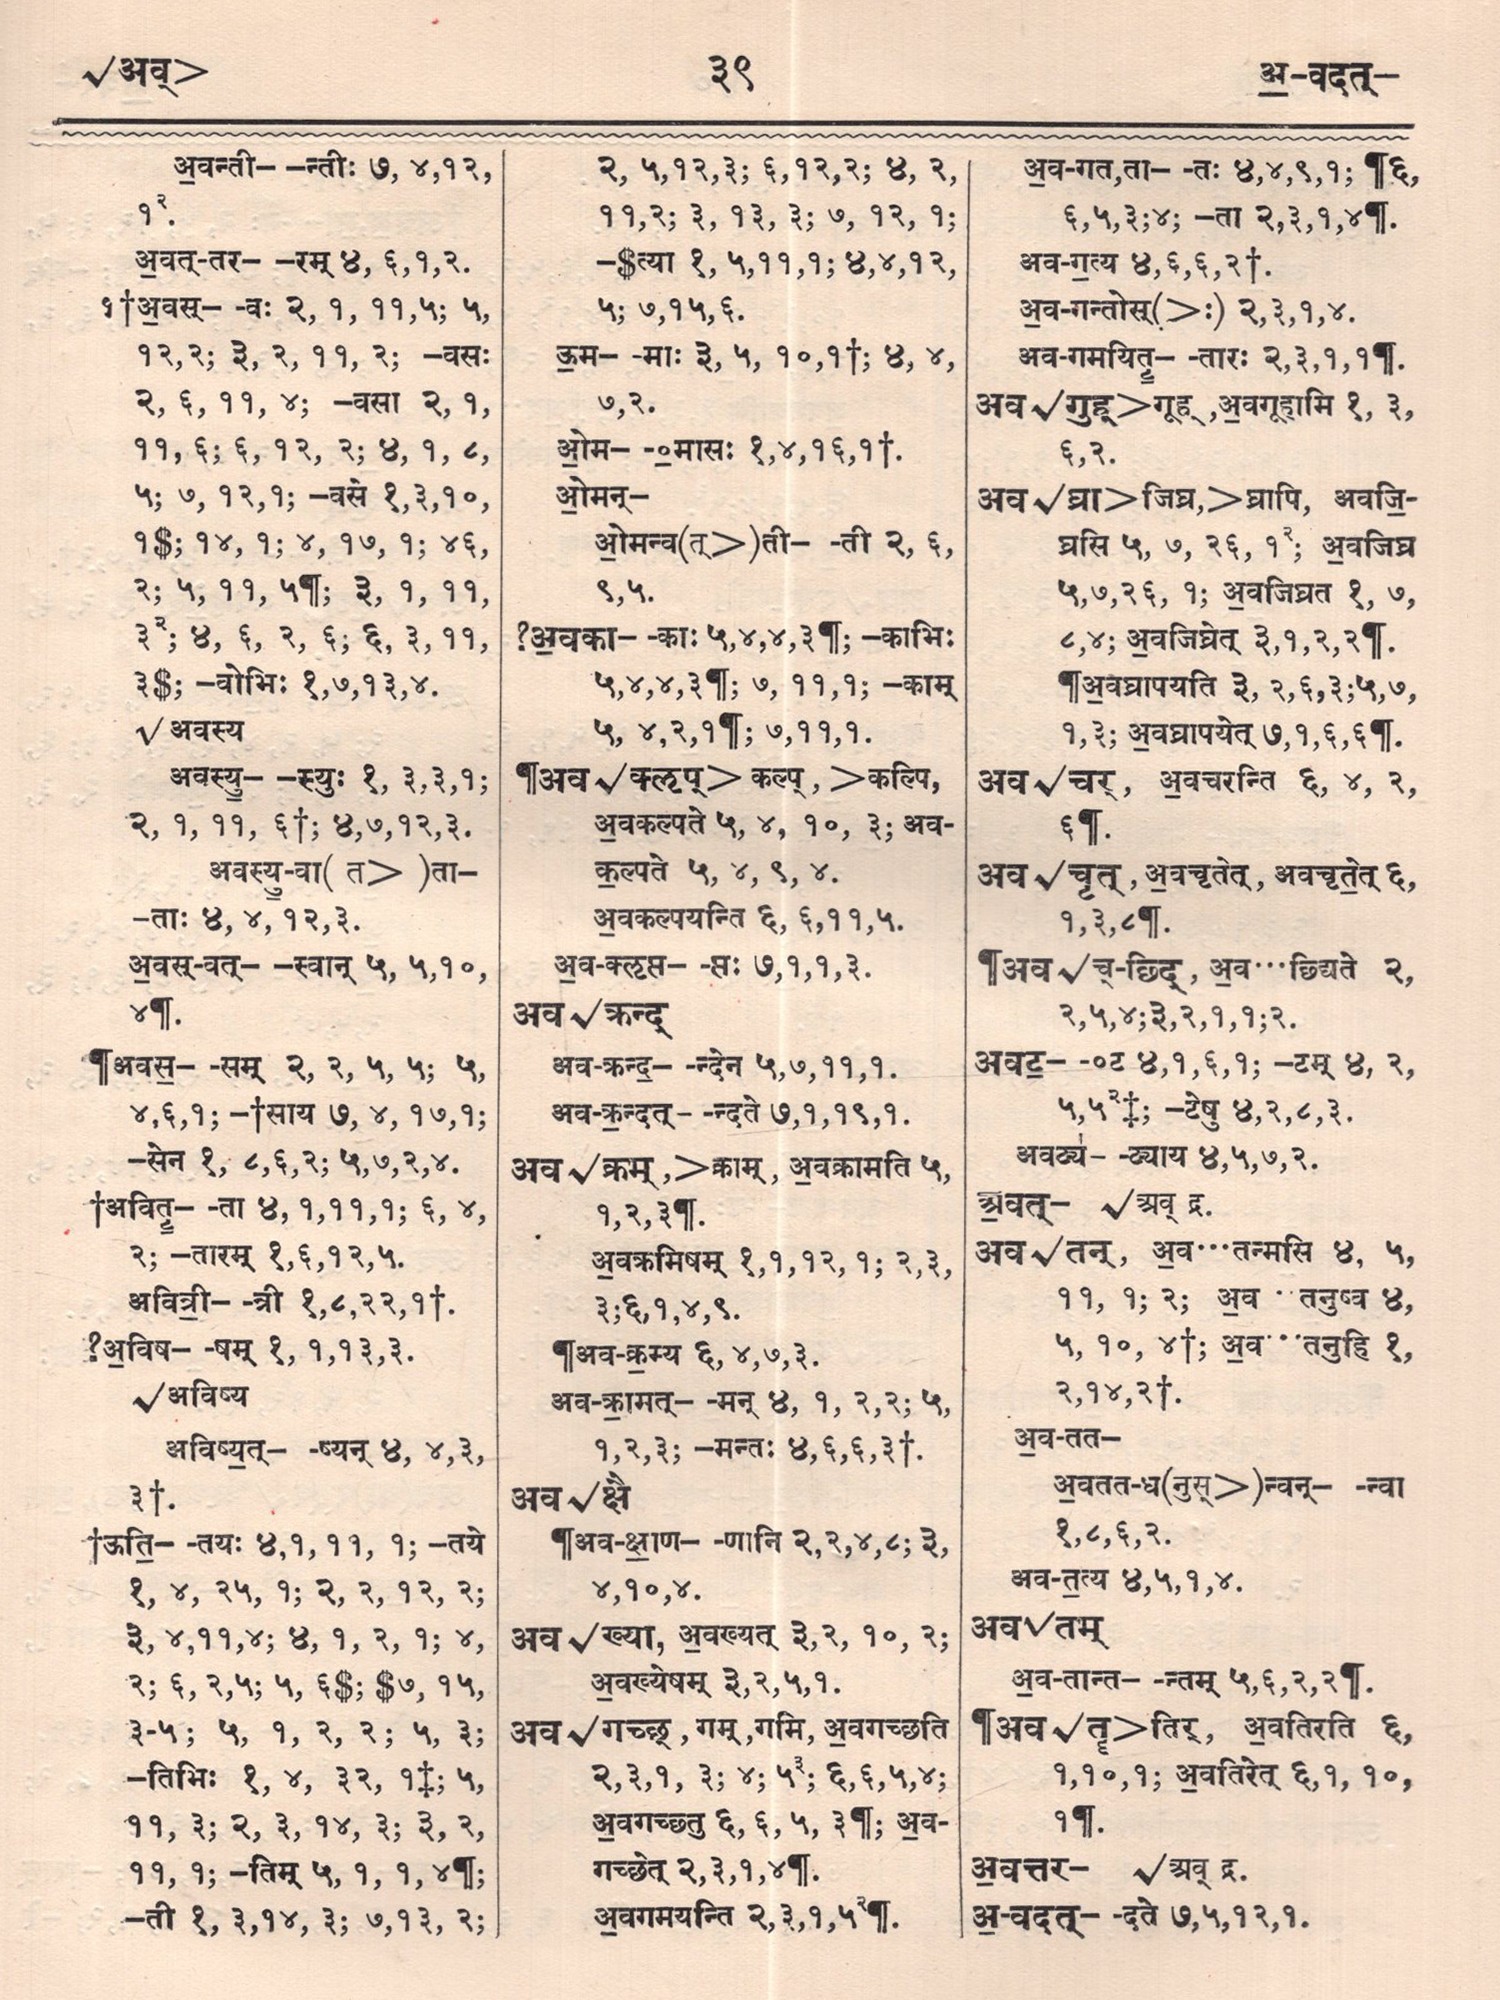 √अव्>
३९
अ॒-वदत्–
अ॒वन्ती– –न्तीः ७, ४,१२,
१२.
अ॒वत्-तर– –रम् ४, ६,१,२.
१†अ॒वस्– -वः २, १, ११,५; ५,
१२,२; ३, २, ११, २; –वसः
२, ६, ११, ४; –वसा २, १,
११, ६; ६, १२, २; ४, १, ८,
५; ७, १२,१; –वसे १,३,१०,
१$; १४, १; ४, १७, १; ४६,
२; ५, ११, ५¶; ३, १, ११,
३२; ४, ६, २, ६; ६, ३, ११,
३$; –वोभिः १,७,१३,४.
√अवस्य
अवस्यु॒– –स्युः १, ३,३,१;
२, १, ११, ६†; ४,७,१२,३.
अवस्यु॒-वा( त> )ता–
-ताः ४, ४, १२,३.
अ॒वस्-वत्– –स्वान् ५, ५,१०,
४¶.
¶अवस॒– -सम् २, २, ५, ५; ५,
४,६,१; –†साय ७, ४, १७,१;
–सेन १, ८,६,२; ५,७,२,४.
†अवितृ॒– -ता ४, १,११,१; ६, ४,
२; –तारम् १,६,१२,५.
अवित्री॒– -त्री १,८,२२,१†.
?अ॒विष– -षम् १, १,१३,३.
√अविष्य
अविष्य॒त्– -ष्यन् ४, ४,३,
३†.
†ऊति॒– -तयः ४,१, ११, १; –तये
१, ४, २५, १; २, २, १२, २;
३, ४,११,४; ४, १, २, १; ४,
२; ६, २,५; ५, ६$; $७, १५,
३-५; ५, १, २, २; ५, ३;
–तिभिः १, ४, ३२, १‡; ५,
११, ३; २, ३, १४, ३; ३, २,
११, १; –तिम् ५, १, १, ४¶;
–ती १, ३,१४, ३; ७,१३, २;
२, ५,१२,३; ६,१२,२; ४, २,
११,२; ३, १३, ३; ७, १२, १;
–$त्या १, ५,११,१; ४,४,१२,
५; ७,१५,६.
ऊ॒म– -माः ३, ५, १०,१†; ४, ४,
७,२.
ओ॒म– -०॒मासः १,४,१६,१†.
ओ॒मन्–
ओ॒मन्व(त्>)ती– -ती २, ६,
९,५.
?अ॒वका– -काः ५,४,४,३¶; –काभिः
५,४,४,३¶; ७, ११,१; –काम्
५, ४,२,१¶; ७,११,१.
¶अव√क्लृप्> कल्प्, >कल्पि,
अ॒वकल्पते ५, ४, १०, ३; अव-
क॒ल्पते ५, ४, ९, ४.
अ॒वकल्पयन्ति ६, ६,११,५.
अ॒व-क्लृप्त– -प्तः ७,१,१,३.
अव√क्रन्द्
अव-क्रन्द॒– -न्देन ५,७,११,१.
अव-क्र॒न्दत्– -न्दते ७,१,१९,१.
अव√क्रम्,>क्राम्, अ॒वक्रामति ५,
१,२,३¶.
अ॒वक्रमिषम् १,१,१२, १; २,३,
३;६,१,४,९.
¶अव-क्र॒म्य ६, ४,७,३.
अव-क्रा॒मत्– -मन् ४, १, २,२; ५,
१,२,३; –मन्तः ४,६,६,३†.
अव√क्षै
¶अव-क्षा॒ण– -णानि २,२,४,८; ३,
४,१०,४.
अव√ख्या, अ॒वख्यत् ३,२, १०, २;
अ॒वख्येषम् ३,२,५,१.
अव√गच्छ्, गम्,गमि, अ॒वगच्छति
२,३,१, ३; ४; ५३; ६,६,५,४;
अ॒वगच्छतु ६, ६, ५, ३¶; अ॒व-
गच्छेत् २,३,१,४¶.
अ॒वगमयन्ति २,३,१,५२¶.
अ॒व-गत,ता– -तः ४,४,९,१; ¶६,
६,५,३;४; –ता २,३,१,४¶.
अव-ग॒त्य ४,६,६,२†.
अ॒व-गन्तोस्(>ः) २,३,१,४.
अव-गमयितृ॒– -तारः २,३,१,१¶.
अव√गुह्>गूह्,अ॒वगूहामि १, ३,
६,२.
अव√घ्रा>जिघ्र,>घ्रापि, अवजि॒-
घ्रसि ५, ७, २६, १२; अ॒वजिघ्र
५,७,२६, १; अ॒वजिघ्रत १, ७,
८,४; अ॒वजिघ्रेत् ३,१,२,२¶.
¶अ॒वघ्रापयति ३, २,६,३;५,७,
१,३; अ॒वघ्रापयेत् ७,१,६,६¶.
अव√चर्, अ॒वचरन्ति ६, ४, २,
६¶.
अव√चृत्,अ॒वचृतेत्, अवचृते॒त् ६,
१,३,८¶.
¶अव√च्-छिद्, अ॒व···छिद्यते २,
२,५,४;३,२,१,१;२.
अवट॒– -०ट ४,१,६,१; –टम् ४, २,
५,५२‡; –टेषु ४,२,८,३.
अवट्य॑– -ट्याय ४,५,७,२.
अ॒वत्– √अव् द्र.
अव√तन्, अ॒व···तन्मसि ४, ५,
११, १; २; अ॒व···तनुष्व ४,
५, १०, ४†; अ॒व···तनुहि १,
२,१४,२†.
अ॒व-तत–
अ॒वतत-ध(नुस्>)न्वन्– -न्वा
१,८,६,२.
अव-त॒त्य ४,५,१,४.
अव√तम्
अ॒व-तान्त– -न्तम् ५,६,२,२¶.
¶अव√तॄ>तिर्, अ॒वतिरति ६,
१,१०,१; अ॒वतिरेत् ६,१, १०,
१¶.
अ॒वत्तर– √अव् द्र.
अ॒-वदत्– -दते ७,५,१२,१.